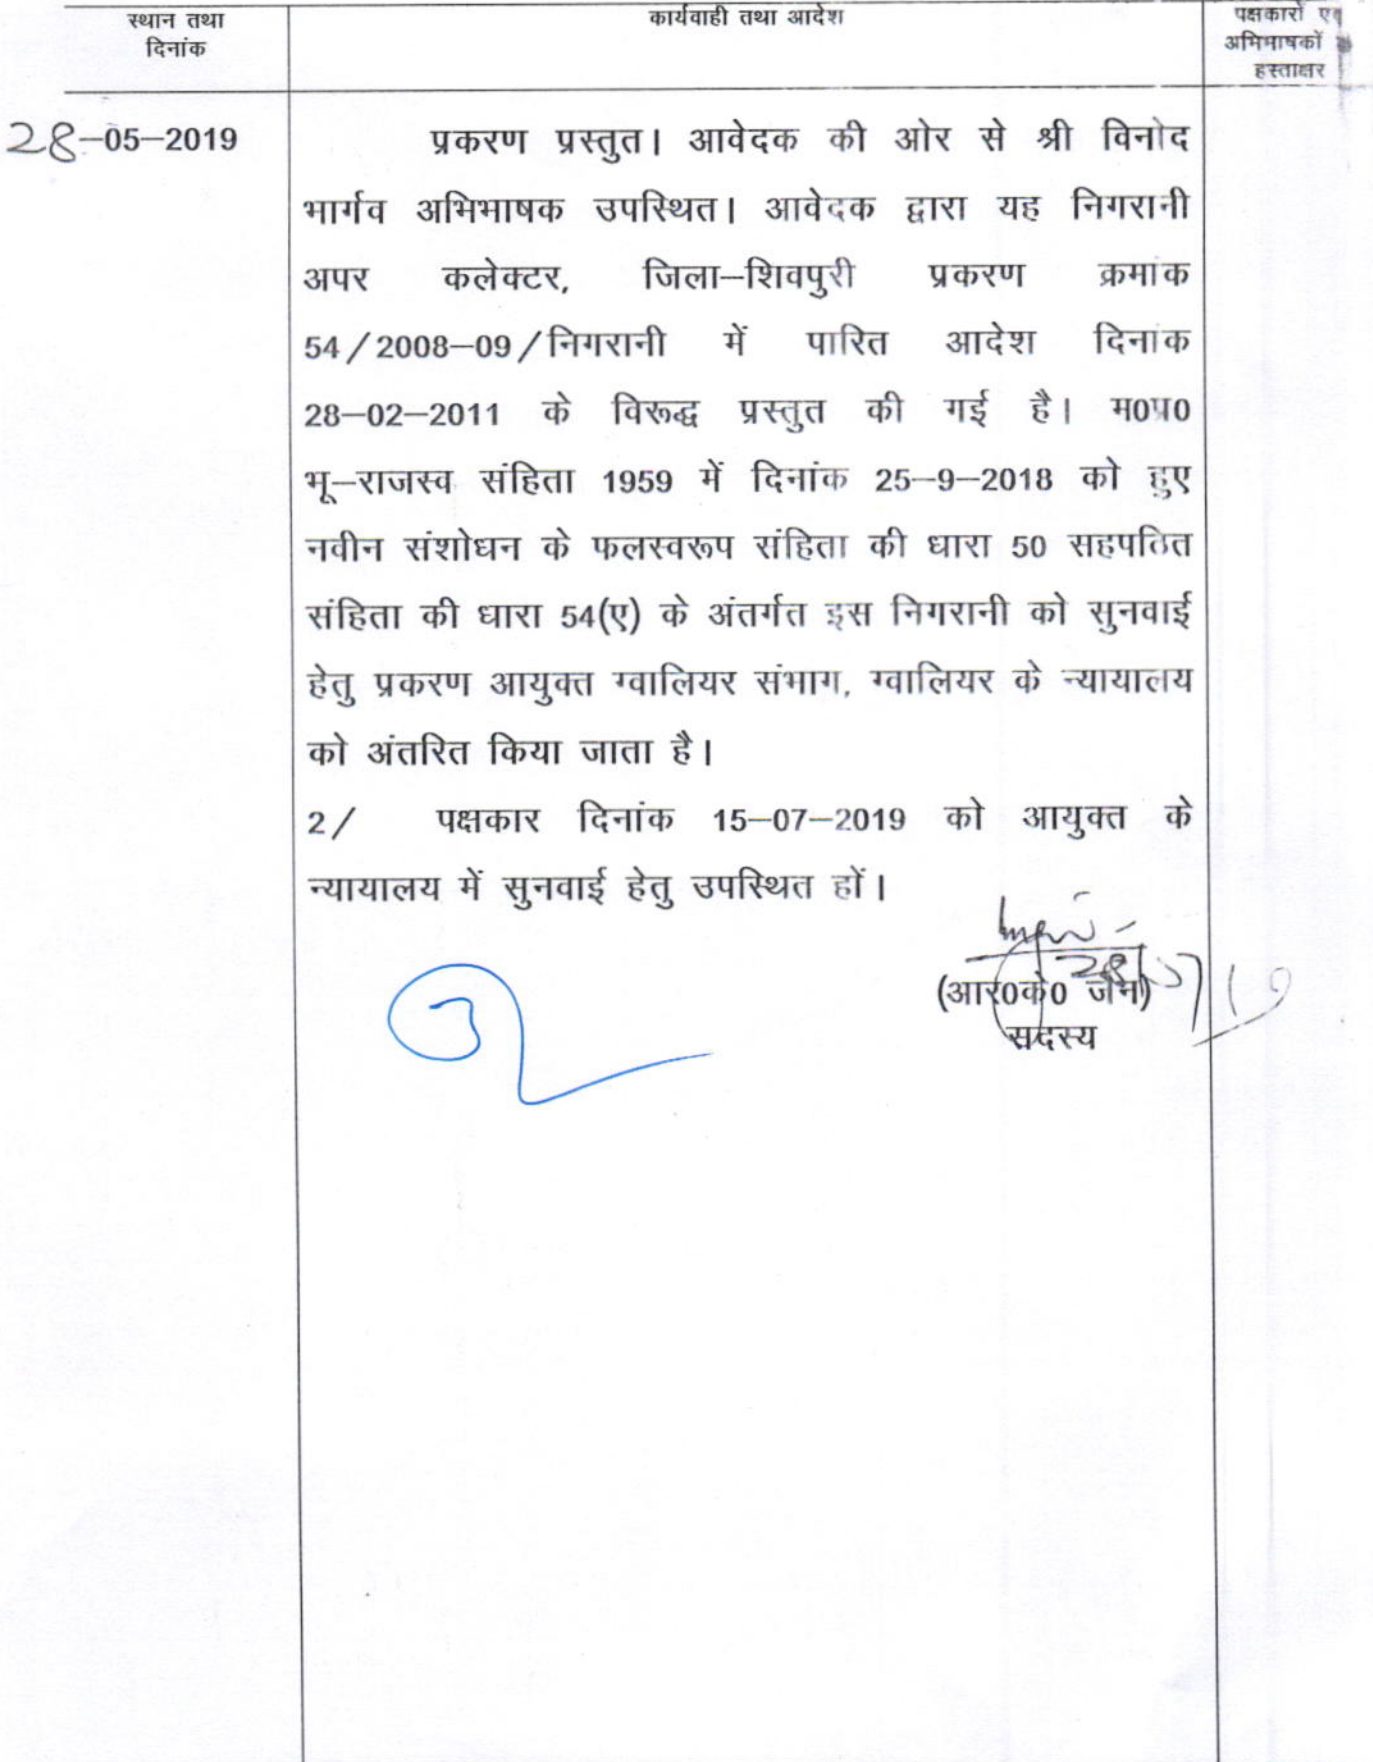 स्थान तथा
दिनांक
कार्यवाही तथा आदेश
पक्षकारों एवं
अभिभाषकों
हस्ताक्षर
28-05-2019
प्रकरण प्रस्तुत। आवेदक की ओर से श्री विनोद
भार्गव अभिभाषक उपस्थित। आवेदक द्वारा यह निगरानी
अपर कलेक्टर, जिला-शिवपुरी प्रकरण क्रमांक
54/2008-09/निगरानी में पारित आदेश दिनांक
28-02-2011 के विरूद्ध प्रस्तुत की गई है। म0प्र0
भू-राजस्व संहिता 1959 में दिनांक 25-9-2018 को हुए
नवीन संशोधन के फलस्वरूप संहिता की धारा 50 सहपठित
संहिता की धारा 54(ए) के अंतर्गत इस निगरानी को सुनवाई
हेतु प्रकरण आयुक्त ग्वालियर संभाग, ग्वालियर के न्यायालय
को अंतरित किया जाता है।
2/ पक्षकार दिनांक 15-07-2019 को आयुक्त के
न्यायालय में सुनवाई हेतु उपस्थित हों।
(आर0के0 जैन)
सदस्य